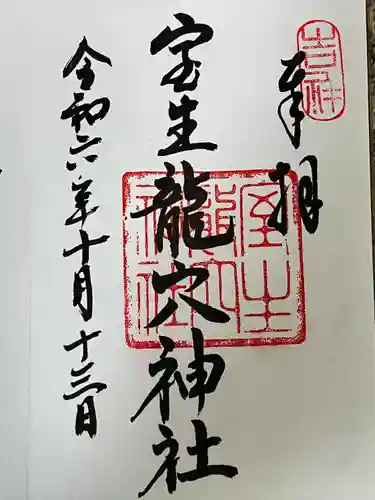 吉祥
奉拝
室生龍穴神社
室生龍穴神社
令和六年十月十三日